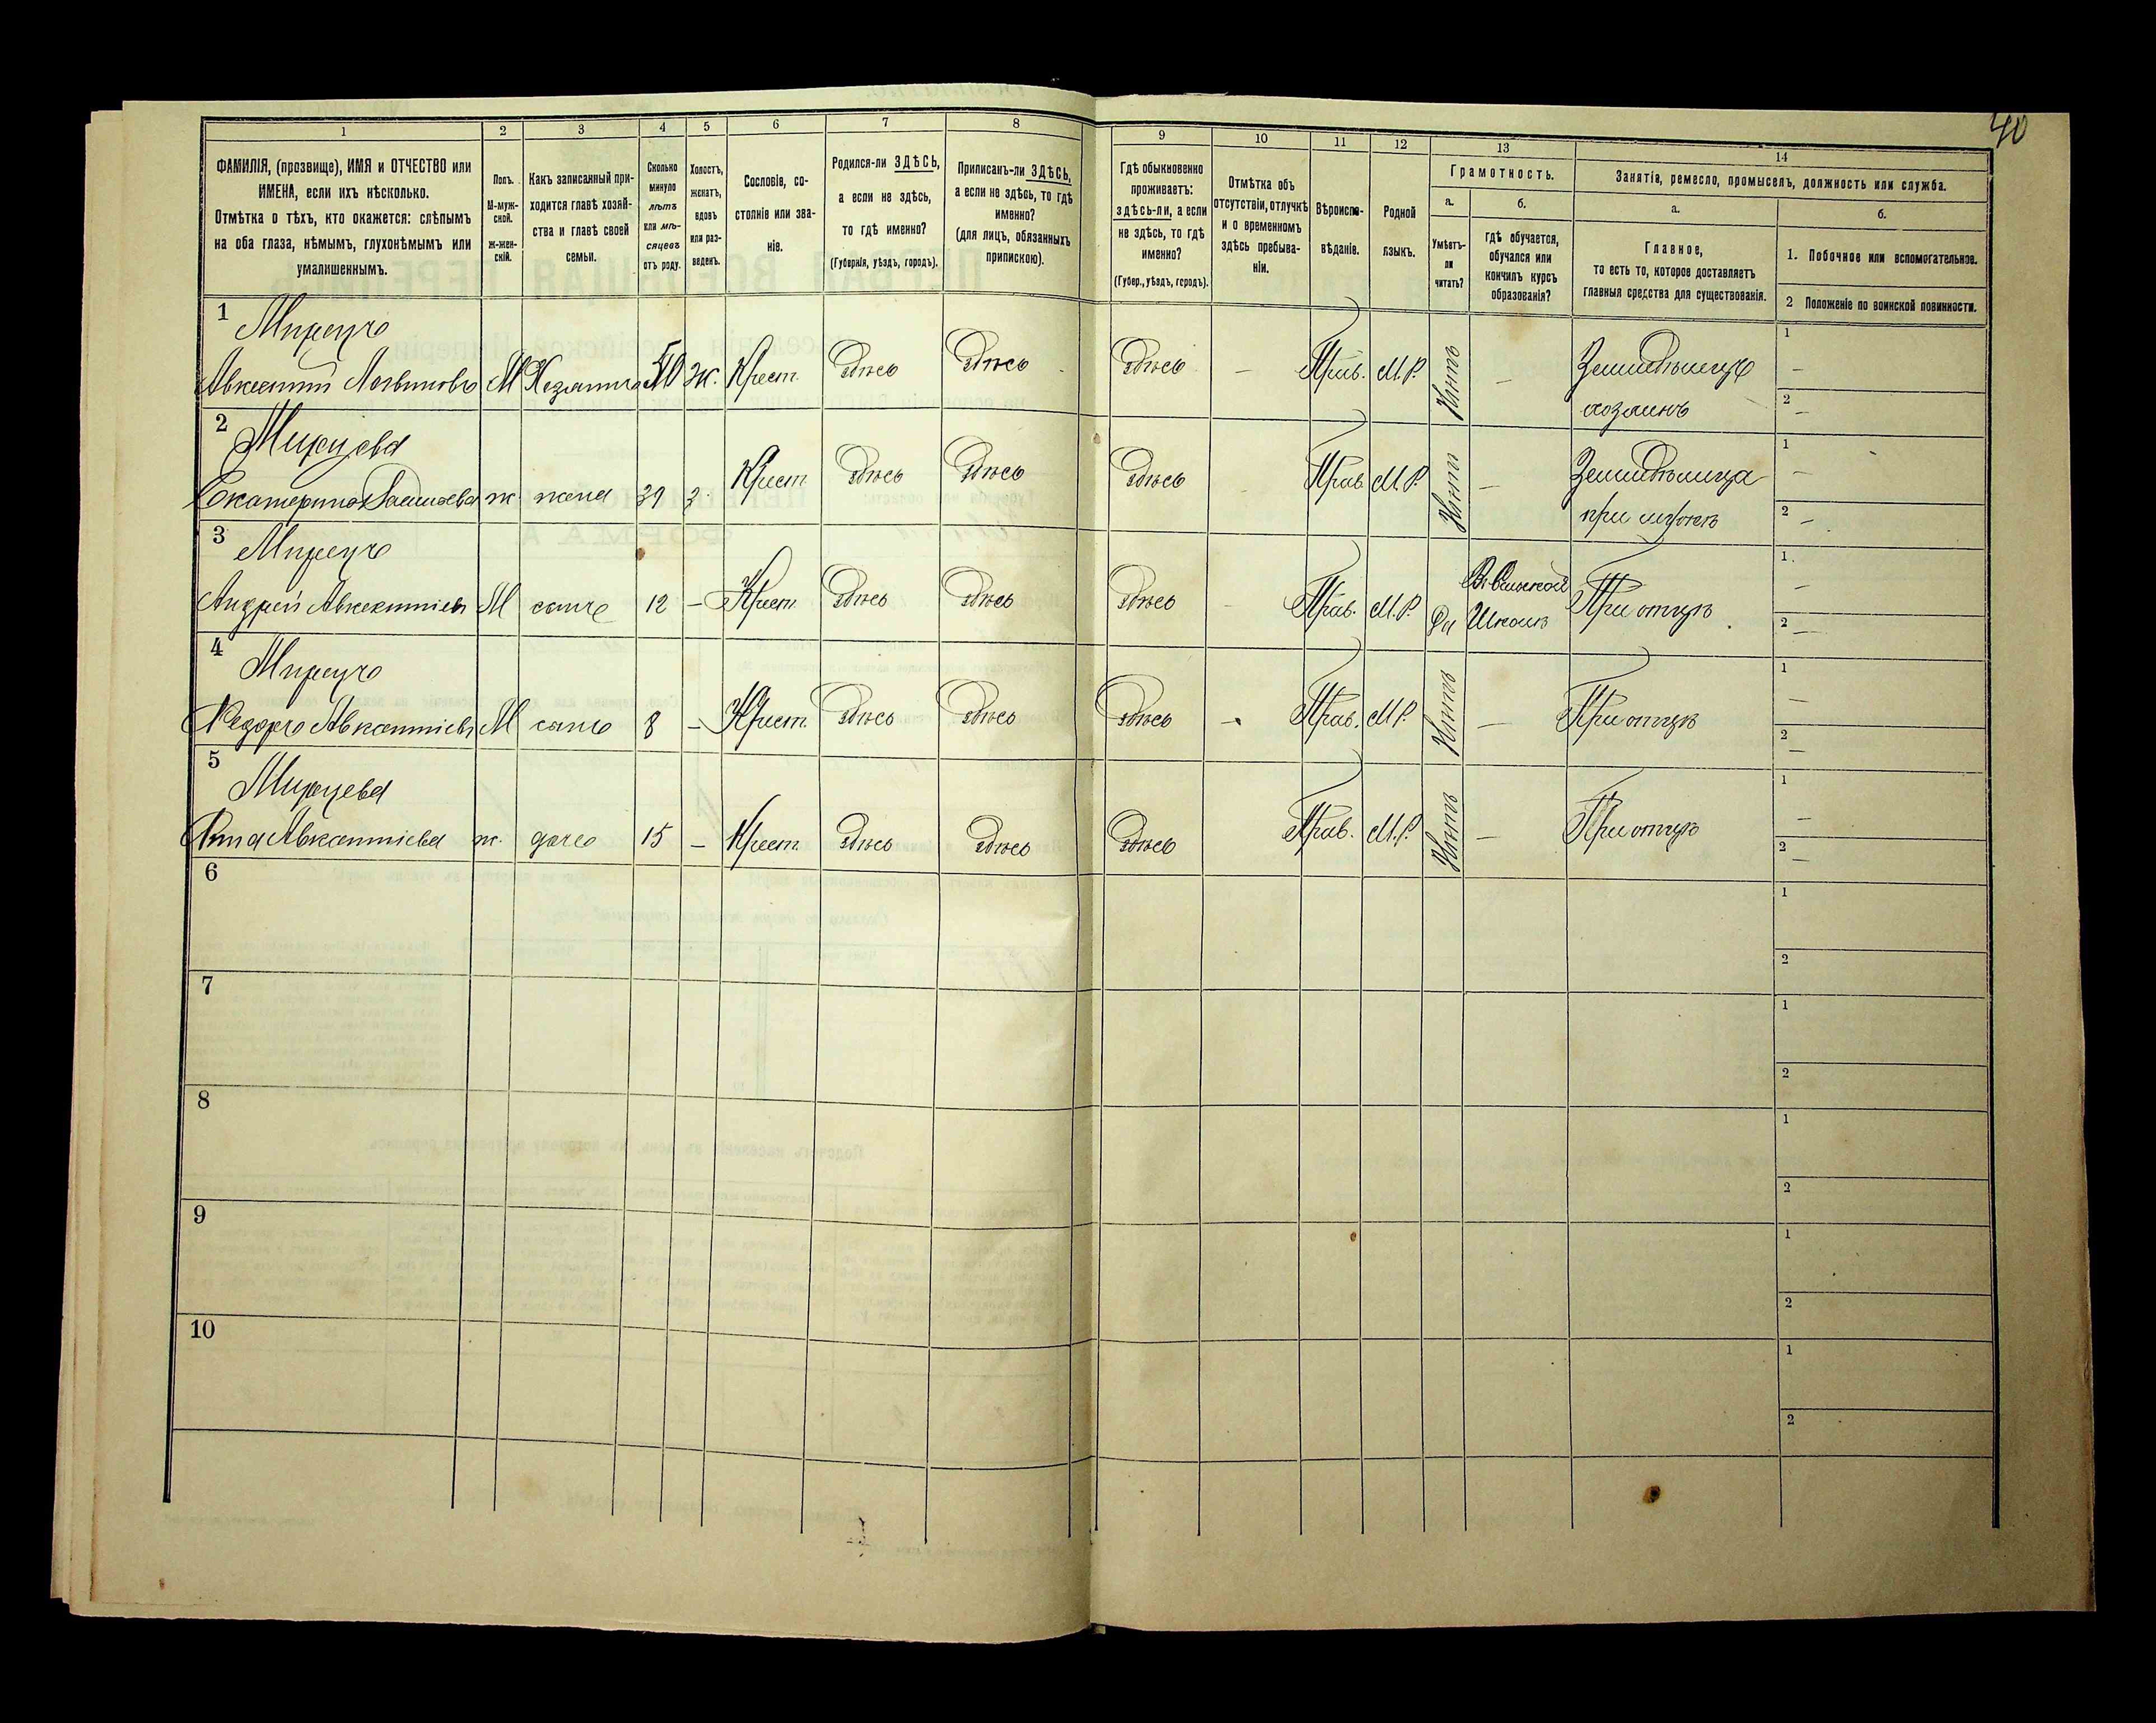 40
1 2 3 4 5 6 7 8 9 10 11 12 13 14
ФАМИЛІЯ, (прозвище), ИМЯ и ОТЧЕСТВО или
ИМЕНА, если ихъ нѣсколько.
Отмѣтка о тѣхъ, кто окажется: слѣпымъ
на оба глаза, нѣмымъ, глухонѣмымъ или
умалишеннымъ.
Полъ.
М-муж-
ской.
ж-жен-
скій.
Какъ записанный при-
ходится главѣ хозяй-
ства и главѣ своей
семьи.
Сколько
минуло
лѣтъ
или мѣ-
сяцевъ
отъ роду.
Холостъ,
женатъ,
вдовъ
или раз-
веденъ.
Сословіе, со-
стояніе или зва-
ніе.
Родился-ли ЗДѢСЬ,
а если не здѣсь,
то гдѣ именно?
(Губернія, уѣздъ, городъ).
Приписанъ-ли ЗДѢСЬ,
а если не здѣсь, то гдѣ
именно?
(для лицъ, обязанныхъ
припискою).
Гдѣ обыкновенно
проживаетъ:
здѣсь-ли, а если
не здѣсь, то гдѣ
именно?
(Губер., уѣздъ, городъ).
Отмѣтка объ
отсутствіи, отлучкѣ
и о временномъ
здѣсь пребыва-
ніи.
Вѣроиспо-
вѣданіе.
Родной
языкъ.
Грамотность.
а.
Умѣетъ-
ли
читать?
б.
гдѣ обучается,
обучался или
кончилъ курсъ
образованія?
Занятія, ремесло, промыселъ, должность или служба.
а.
Главное,
то есть то, которое доставляетъ
главныя средства для существованія.
б.
1. Побочное или вспомогательное.
2 Положеніе по воинской повинности.
1
Авксентій Логвиновъ М Хозяинъ 50 Ж. Крест. Здѣсь Здѣсь Здѣсь — Прав. М.Р. Нѣтъ — Земледѣлецъ 1 —
хозяинъ 2 —
2
Екатерина ж. жена 39 З. Крест Здѣсь Здѣсь Здѣсь Прав М.Р. Нѣтъ — Земледѣлица 1 —
при мужѣ 2 —
3
Андрей Авксентіевъ М сынъ 12 — Крест Здѣсь Здѣсь Здѣсь — Прав. М.Р. Да В сельской Школѣ При отцѣ 1. — 2 —
4
Федоръ Авксентіевъ М сынъ 8 — Крест Здѣсь Здѣсь Здѣсь — Прав. М.Р. Нѣтъ — При отцѣ 1 — 2 —
5
Анна Авксентіева ж. дочь 15 — Крест Здѣсь Здѣсь Здѣсь Прав. М.Р. Нѣтъ — При отцѣ 1 — 2 —
6 1 2
7 1 2
8 1 2
9 1 2
10 1 2